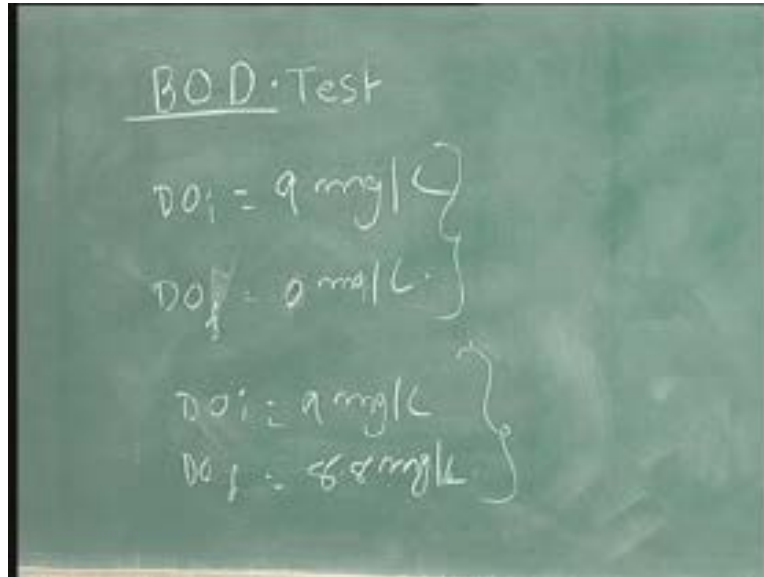 BOD. Test
DOi = 9 mg/L
DOf = 0 mg/L.
DOi = 9 mg/L
DOf = 8.8 mg/L